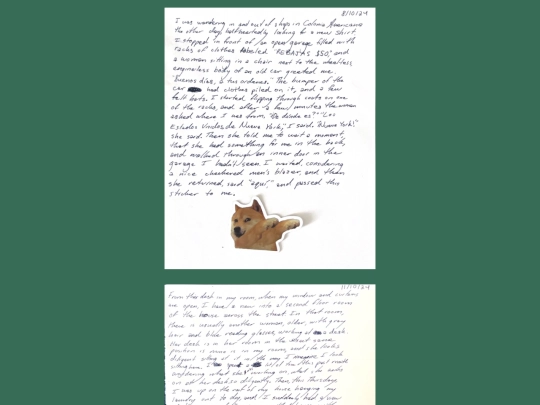 8/10/24
I was wandering in and out of shops in Colonia Americana
the other day, halfheartedly looking for a new shirt.
I stopped in front of an open garage filled with
racks of clothes labeled "REBAJAS $50," and
a woman sitting in a chair next to the wheelless
engineless body of an old car greeted me
"Buenos dias, a tus ordenes." The bumper of the
car had clothes piled on it, and a few
felt hats. I started flipping through coats on one
of the racks, and after a few minutes the woman
asked where I was from. "De dónde es?" "Los
Estados Unidos, de Nueva York," I said. "Nueva York!"
she said. Then she told me to wait a moment,
that she had something for me in the back,
and walked through an inner door in the
garage I hadn't seen. I waited, considering
a nice checkered men's blazer, and then
she returned, said "aquí," and passed this
sticker to me.
11/10/24
From the desk in my room, when my window and curtains
are open, I have a view into a second floor room
of the house across the street. In that room,
there is usually another woman, older, with gray
hair and blue reading glasses, working at a desk.
Her desk is in her room in the exact same
position as mine is in my room, and she looks
diligent sitting at it in the way I imagine I look
sitting here. I
wondering what she's working on, what she writes
on at her desk so diligently. Then this Thursday
I was up on the roof of my house hanging my
laundry out to dry, and I suddenly had a view